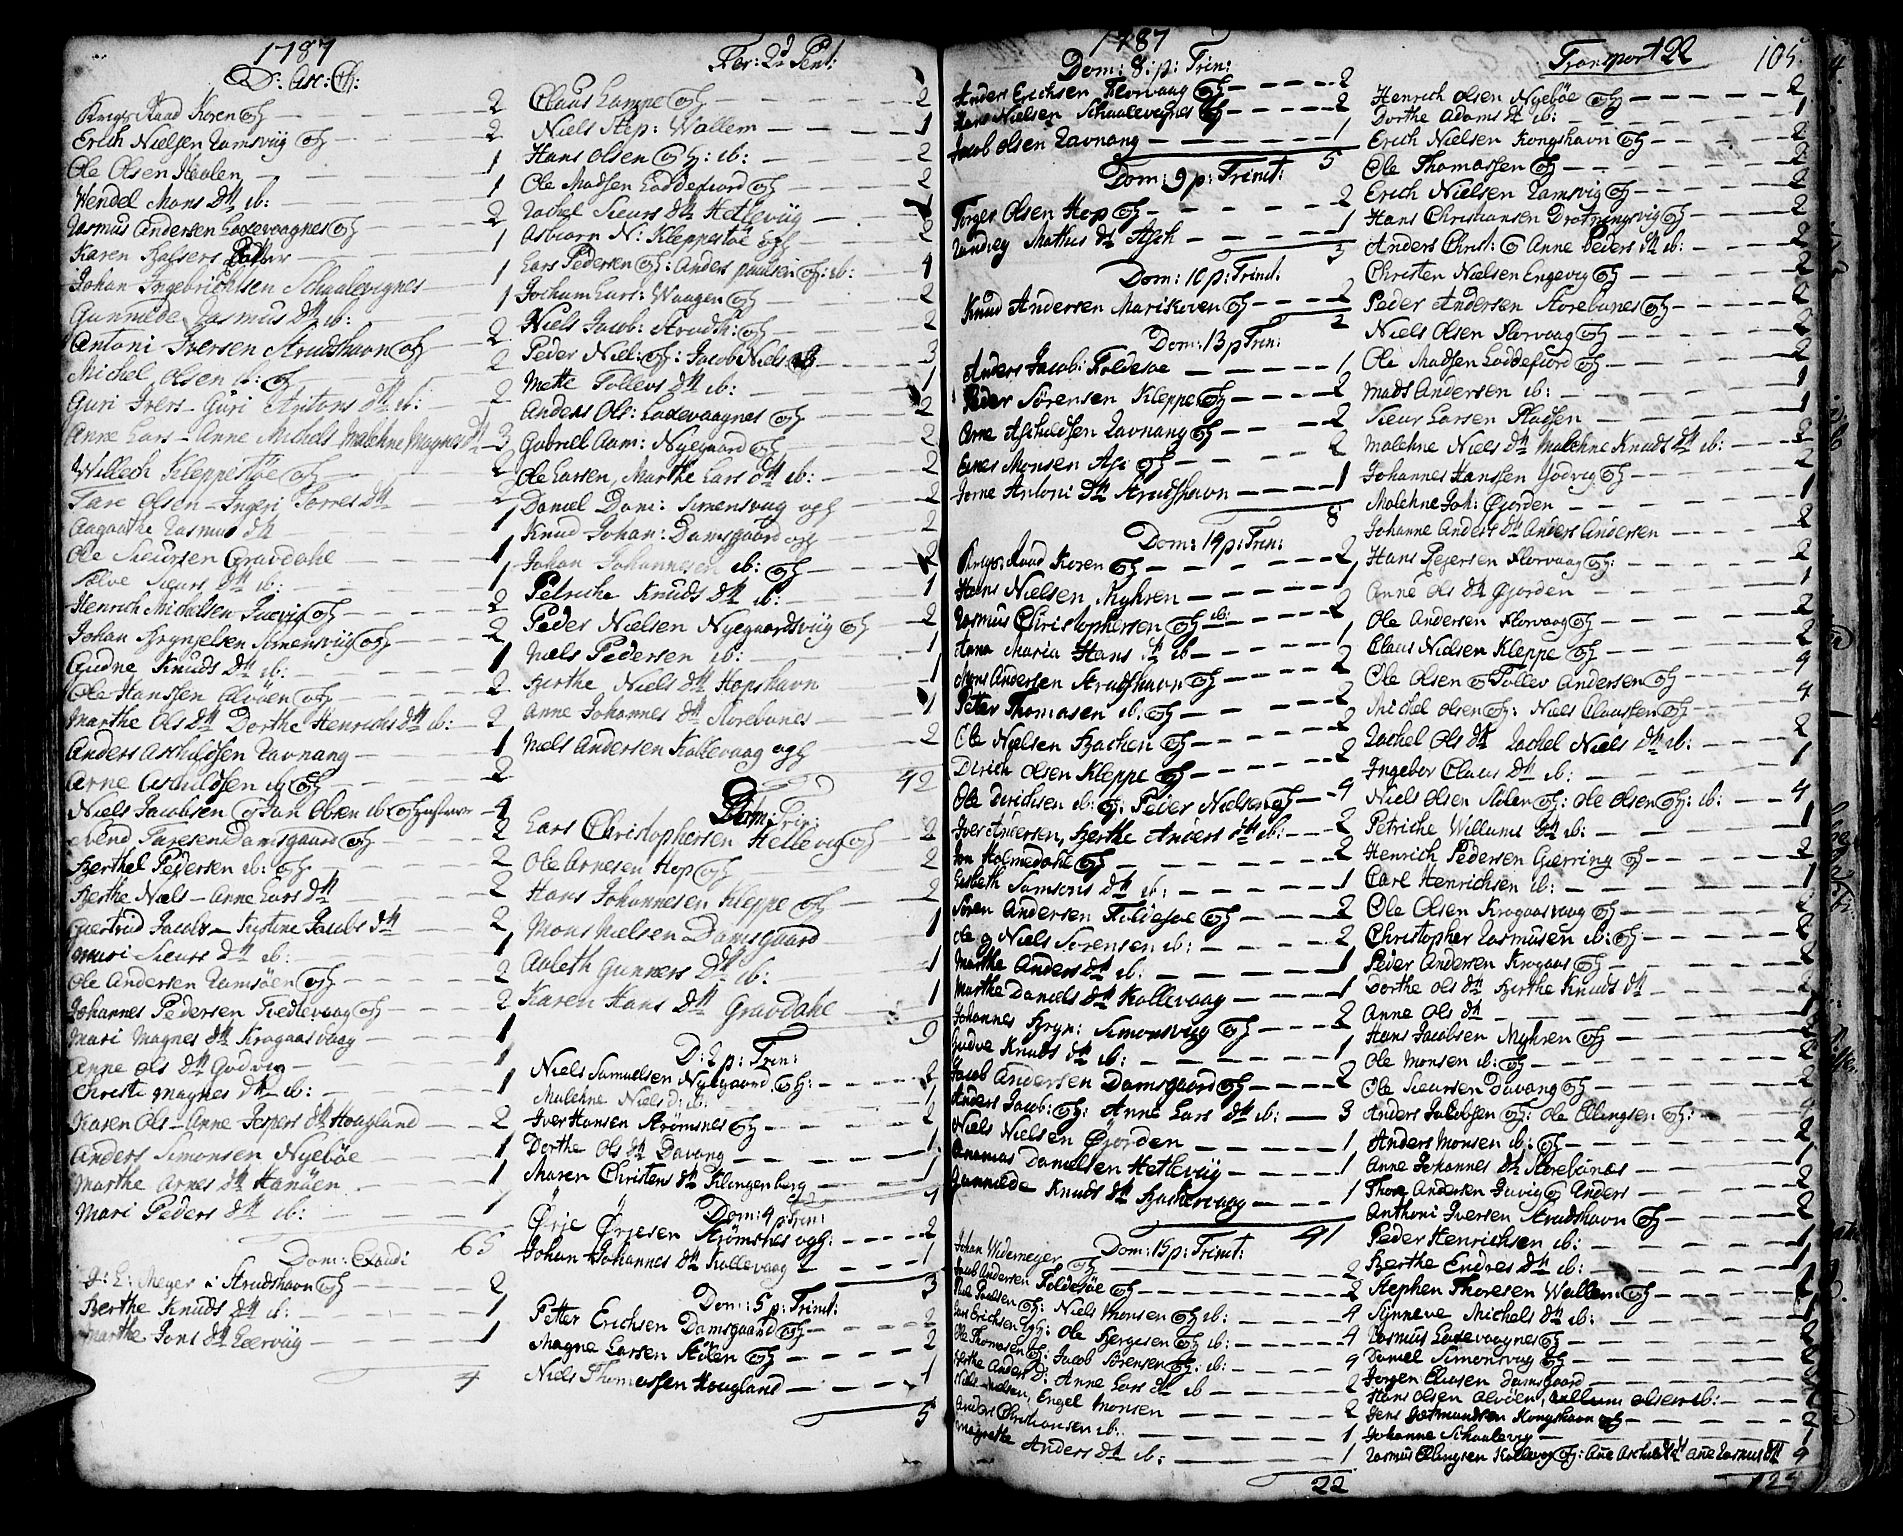 1787
D: Asc: Ch:
Krigs Raad Koren og H 2
Erich Nielsen Ramsviig og H 2
Ole Olsen Haalen 1
Wendel Mons Dtt ib: 1
Rasmus Andersen Laxevaagnes og H 2
Karen 1
Johan Ingebrichtsen Schaalevignes 1
Gunnilde Rasmus Dtt ib: 1
Antoni Iversen Strudshavn og H 2
Michel Olsen ib: og H 2
Guri Ivers- Guri Antons Dtt ib: 2
Anne Lars- Anne Michels Malehne Magnes Dtt 3
Willech Kleppestøe og H 2
Tare Olsen- Ingeri Torres Dtt 2
Aagaathe Rasmus Dtt 1
Ole Sieursen Gravdahl 1
Sieurs Dtt ib: 1
Henrich Michelsen og H 2
Johan Brynjelsen Simensviig og H 2
Gudne Knuds Dtt ib: 1
Ole Hanssen Alvøen og H 2
Marthe Ols Dtt Dorthe Henrichs Dtt ib: 2
Anders Aschildsen Ravnang 1
Arne Aschildsen ib og H 2
Niels Jacobsen og Jan Olsen ib og 4
Taresen Damsgaard og H 2
Berthel Pedersen ib: og H 2
Berthe Niels- Anne Lars Dtt 2
Giertrud Jacobs- Kirstine Jacobs Dtt 2
Mari Sieurs Dtt ib: 1
Ole Andersen Ramsøen og H 2
Johannes Pedersen Tredlevaag og H 2
Mari Magnes Dtt Krogaasvaag 1
Anne Ols Dtt Godvig 1
Christi Magnes Dtt ib: 1
Karen Ols- Anne Jespers Dtt Hougland 2
Anders Simonsen Nyebøe 1
Marthe Arnes Dtt Hanøen 1
Mari Peders Dtt ib: 1
65
Dom: Exaudi
J: E: Meyer i Strudshavn og H 2
Berthe Knuds Dtt ib: 1
Marthe Jons Dtt Leervaag 1
4
Fer: 2d Pent:
Claus Lampe og H 2
Niels Step: Wallem 1
Hans Olsen og H: ib: 2
Ole Madsen Loddefiord og H 2
Rachel Sieurs Dtt Hetleviig 1
Asbiorn N: Kleppestøe og H 2
Lars Pedersen og H: Anders Paulsen og H: ib: 4
Jochum Lars: Waagen og H 2
Niels Jacob: Strudsh: og H 2
Peder Niel: og H: Jacob Niels ib 3
Mette Tollevs Dtt ib: 1
Anders Ols: Laxevaagnes og H 2
Gabriel Aam: Nyegaard og H 2
Ole Larsen, Marthe Lars Dtt ib: 2
Daniel Dani: Simensvug og H 2
Knud Johan: Damsgaard og H 2
Johan Johannesen ib: og H 2
Petriche Knuds Dtt ib: 1
Peder Nielsen Nyegaardsviig og H 2
Niels Pedersen ib: 1
Berthe Niels Dtt Hopshavn 1
Anne Johannes Dtt Storebunes 1
Niels Andersen Kollevaag og H 2
42
Dom: Trin:
Lars Christophersen Hetlevig og H 2
Ole Arnesen Hop og H 2
Hans Johannesen Kleppe og H 2
Mons Nielsen Damsgaard 1
Aaleth Gunners Dtt ib: 1
Karen Hans Dtt Gravdahl 1
9
D: 2 p: Trin:
Niels Samuelsen Nyegaard og H: 2
Malehne Niels D: ib: 1
Iver Hansen Strømsnes og H 2
Dorthe Ols Dtt Davang 1
Maren Christens Dtt Klingenberg 1
Dom: 4 p: Trin:
Ørje Ørjesen Strømsnes og H: 2
Johan Johannes Dtt Kollevaag 1
3
Dom: 5 p: Trinit:
Petter Erichsen Damsgaard og H 2
Magne Larsen Stølen og H 2
Niels Thomassen Hougland 1
5
1787
Dom: 8: p: Trin:
Anders Erichsen Florvaag og H 2
Hans Nielsen Schaalevignes og H 2
Jacob Olsen Ravnang 1
5
Dom: 9 p: Trinit:
Torger Olsen Hop og H 2
Mathis Dtt Ask 1
3
Dom: 10 p: Trinit:
Knud Andersen Mariskoven og H 2
2
Dom: 13 p Trin:
Anders Jacob: Foldesøe 1
Peder Sørensen Kleppe og H 2
Arne Aschildsen Ravnang og H 2
Monsen Ask og H 2
Jorne Antoni Dtt Strudshavn 1
8
Dom: 14 p: Trin:
Krigs Raad Koren og H 2
Hans Nielsen Myhren 1
Rasmus Christophersen og H ib: 2
Anna Maria Hans Dtt ib 1
Mons Andersen Strudshavn og H 2
Peter Thomasen ib: og H 2
Ole Nielsen Bachen og H 2
Dirich Olsen Kleppe og H 2
Ole Dirichsen ib: og H: Peder Nielsen og H 4
Iver Andersen, Berthe Anders Dtt ib: 2
Jon Holmedahl og H 2
Lisbeth Samsons Dtt ib: 1
Søren Andersen Foldesøe og H 2
Ole og Niels Sørensen ib: 2
Marthe Anders Dtt ib: 1
Marthe Daniels Dtt Kollevaag 1
Johannes Bryn: Simonsviig og H 2
Gudve Knuds Dtt ib: 1
Jacob Andersen Damsgaard og H 2
Anders Jacob: og H: Anne Lars Dtt ib: 3
Niels Nielsen Gjorden 1
Ananias Danielsen Hetleviig 1
Gunnilde Knuds Dtt Haakevaag 1
41
Dom: 15 p: Trinit:
Johan Widemeyer og H 2
Jacob Andersen Foldesøe og H 2
Poul Poulsen og H: Niels Monsen og H ib: 4
Lars Erichsen og H: Ole Børgesen og H ib: 4
Ole Thomasen og H: Jacob Sørensen og H: ib: 4
Berthe Anders D: Anne Lars Dtt ib 2
Niels Nielsen, Engel Monsen 2
Anders Christiansen ib: 1
Magrethe Anders Dtt ib: 1
22
Transport 22
105
Henrich Olsen Nyebøe og H 2
Dorthe Adams Dtt ib: 1
Erich Nielsen Kongshavn og H 2
Ole Thomassen og H 2
Erich Nielsen Ramsvig og H 2
Hans Christiansen Drotningsvig og H 2
Anders Christ: & Anne Peders Dtt ib: 2
Christen Nielsen Engevig og H 2
Peder Andersen Storebunes og H 2
Niels Olsen Florvaag og H 2
Ole Madsen Loddefiord og H 2
Mads Andersen ib: 1
Sieur Larsen Stadsen 1
Malehne Niels Dtt Malehne Knuds Dtt ib: 2
Johannes Hanssen Godvig og H 2
Malehne Joh: Gjorden 1
Johanne Anders Dtt Anders Andersen 2
Hans Pejersen Florvaag og H: 2
Anne Ols Dtt Gjorden 1
Ole Andersen Florvaag og H 2
Claus Nielsen Kleppe og H 2
Ole Olsen & Tollev Andersen og H 4
Michel Olsen og H: Niels Claussen og H 4
Rachel Ols Dtt Rachel Niels Dtt ib: 2
Ingebor Claus Dtt ib: 1
Niels Olsen Stølen og H: Ole Olsen og H: ib: 4
Petriche Willums Dtt ib: 1
Henrich Pedersen Gierring og H 2
Carl Henrichsen ib: 1
Ole Olsen Krogaasvaag og H 2
Christopher Rasmusen ib: og H 2
Peder Andersen Krogaas og H 2
Dorthe Ols Dtt Berthe Knuds Dtt 2
Anne Ols Dtt 1
Hans Jacobsen Myhren og H 2
Ole Monsen ib: og H 2
Ole Sieursen Davang og H 2
Anders Jacobsen og H: Ole Ellingsen og H: 4
Anders Monsen ib: og H 2
Anne Johannes Dtt Storebunes 1
Thore Andersen Juvig & Anders 2
Anthoni Iversen Strudshavn og H 2
Peder Henrichsen ib: 1
Berthe Endres Dtt ib: 1
Stephen Thoresen Wallem og H 2
Synneve Michels Dtt ib: 1
Rasmus Laxevaagnes og H 2
Daniel Simonsvug og H 2
Jørgen Clausen Damsgaard 1
Hans Olsen Alvøen, Olsen ib: 2
Jens Kongshavn og H 2
Johanne Schaalevig 1
Rasmus Ellingsen Kollevog og H: Ane Aschilds Dtt Ane Rasmus Dtt 4